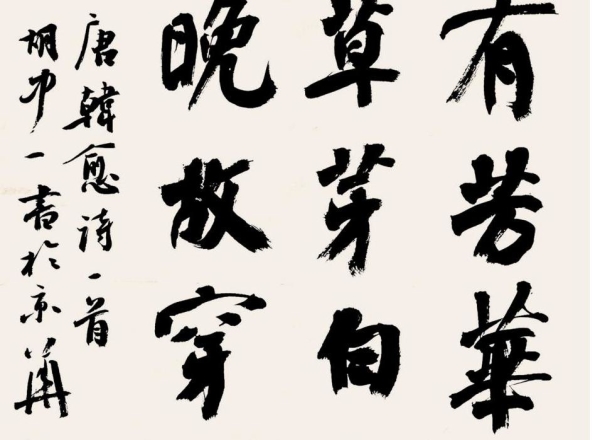 有芳華
草芽白
晚故穿
唐韓愈詩一首
胡中一書於京華